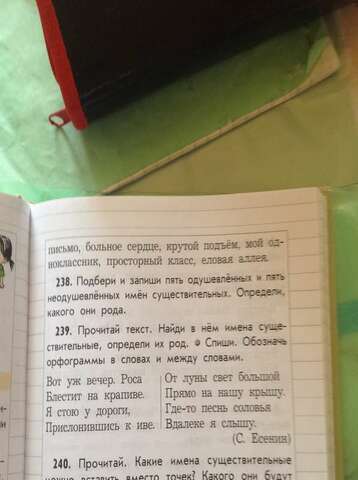 письмо, больное сердце, крутой подъём, мой од-
ноклассник, просторный класс, еловая аллея.
238. Подбери и запиши пять одушевлённых и пять
неодушевлённых имён существительных. Определи,
какого они рода.
239. Прочитай текст. Найди в нём имена суще-
ствительные, определи их род. Спиши. Обозначь
орфограммы в словах и между словами.
Вот уж вечер. Роса
Блестит на крапиве.
Я стою у дороги,
Прислонившись к иве.
От луны свет большой
Прямо на нашу крышу.
Где-то песнь соловья
Вдалеке я слышу.
(С. Есенин)
240. Прочитай. Какие имена существительные
можно вставить вместо точек? Какого они будут